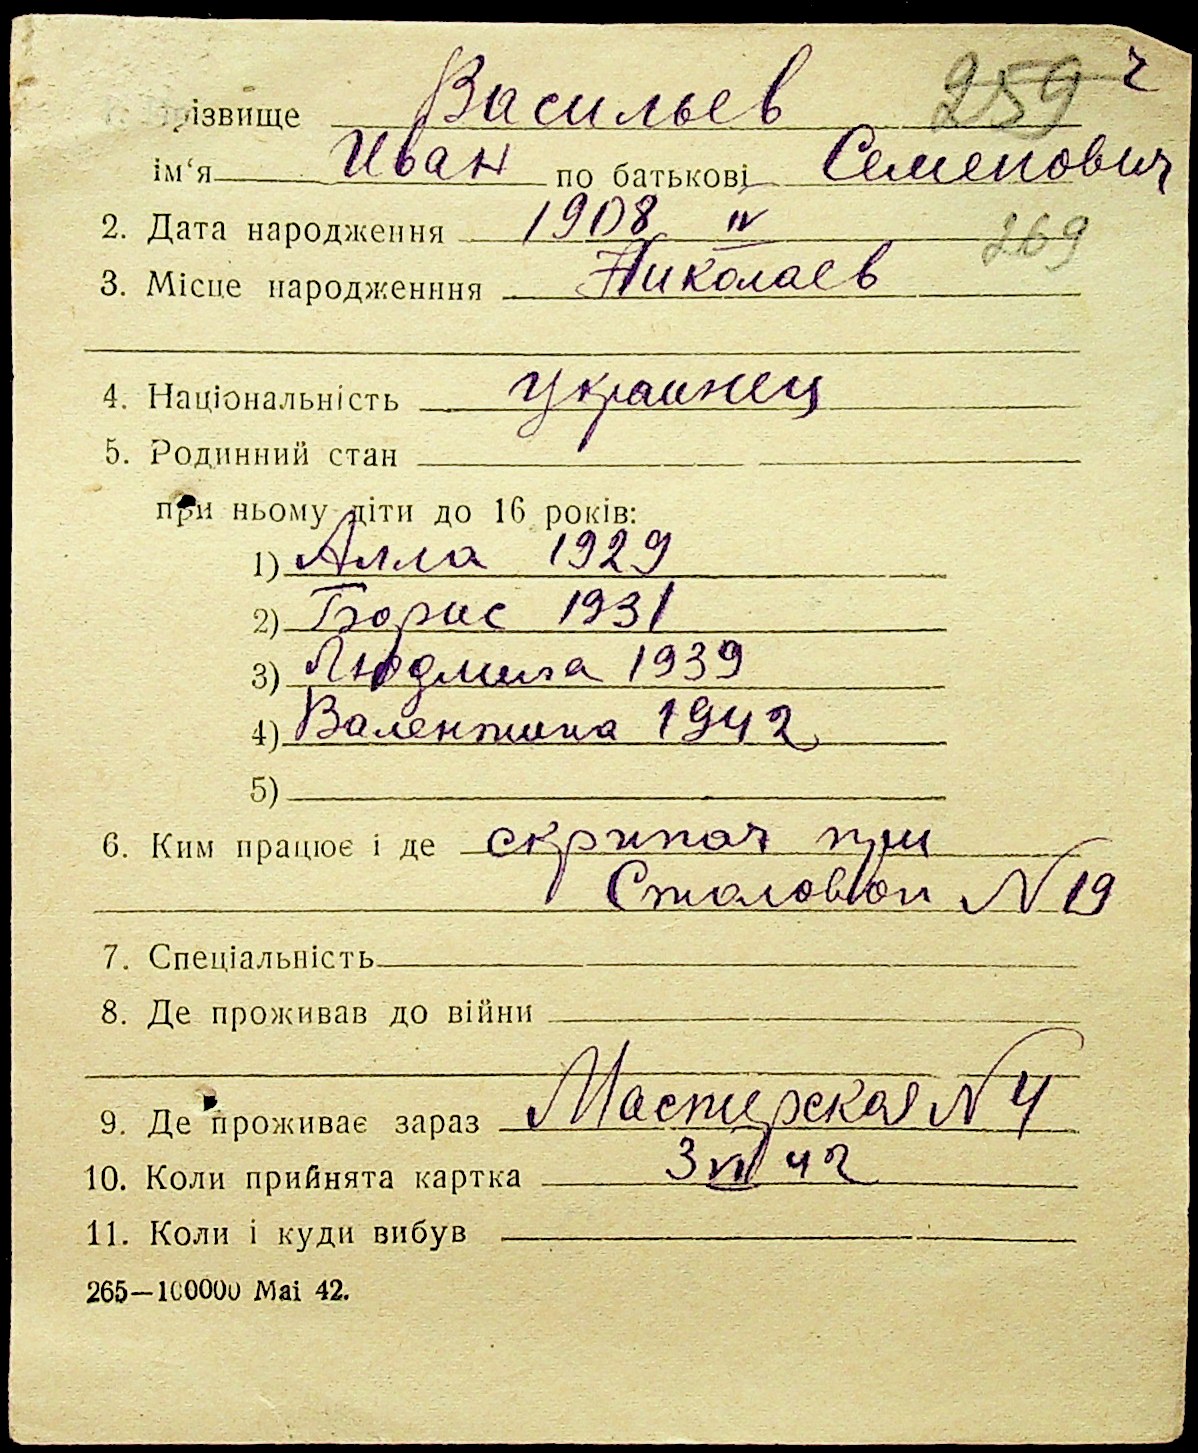 різвище Васильев 259 ч
ім‘я Иван по батькові Семенович
2. Дата народження 1908 IV 269
3. Місце народженння Николаев
4. Національність украинец
5. Родинний стан
при ньому діти до 16 років:
1) Алла 1929
2) Борис 1931
3) Людмила 1939
4) Валентина 1942
5)
6. Ким працює і де скрипач при
Столовой N 19
7. Спеціальність
8. Де проживав до війни
9. Де проживає зараз Мастерская N 4
10. Коли прийнята картка 3 VII 42
11. Коли і куди вибув
265—100000 Mai 42.